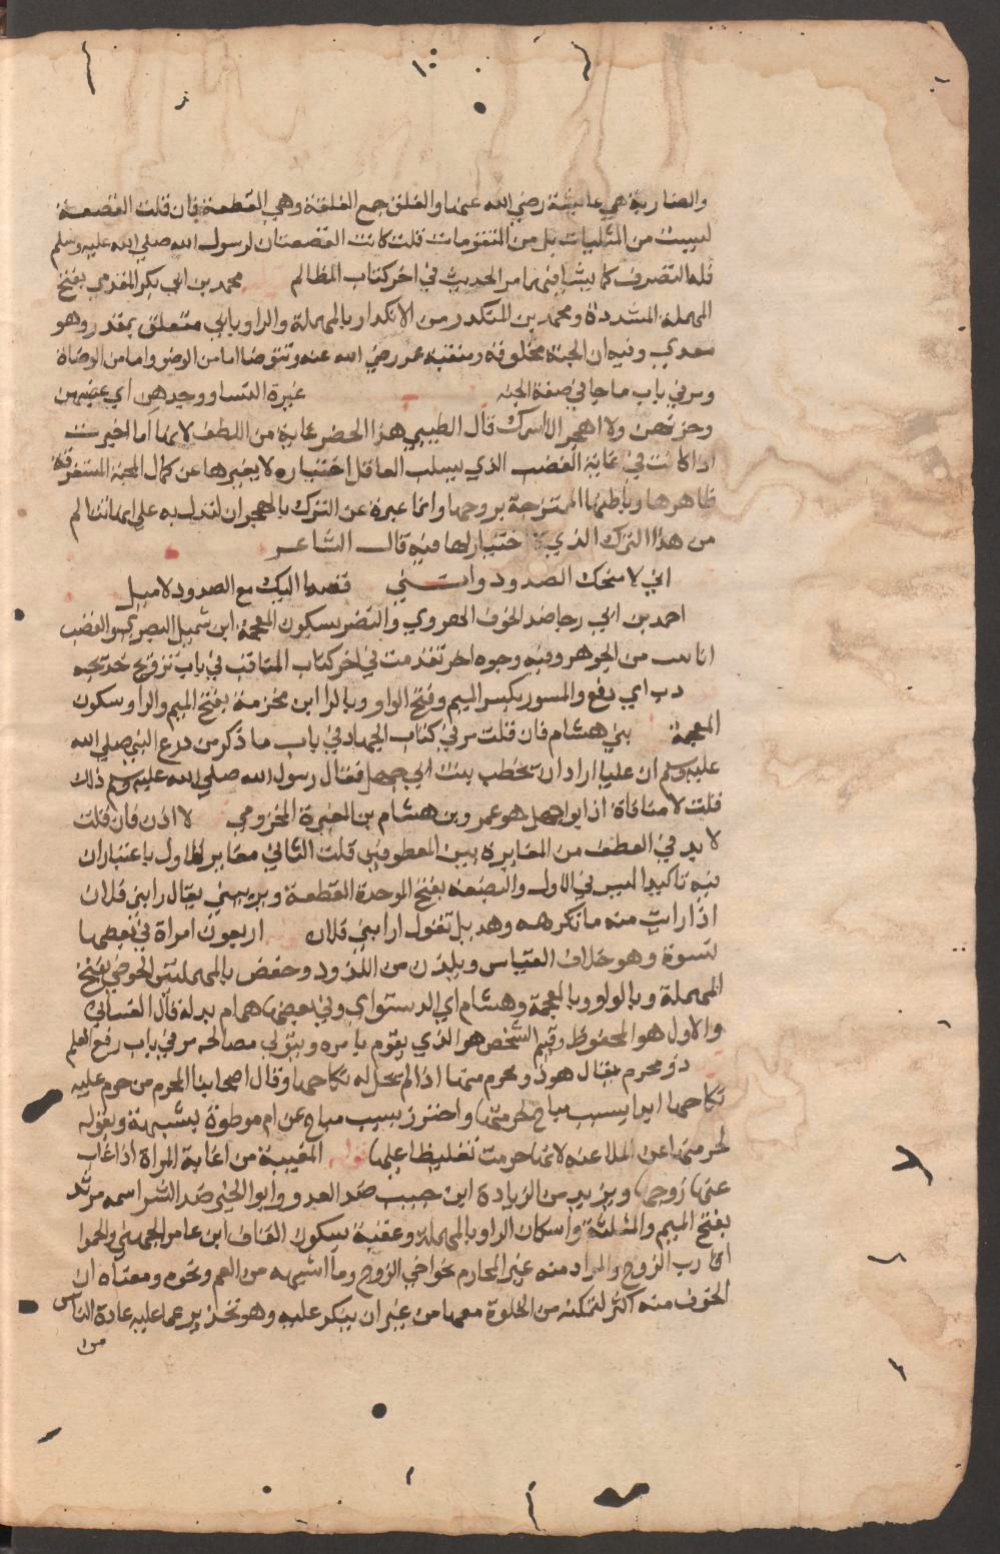 والضاربة هي عايشة رضي الله عنها والفلق جمع الفلقة وهي القطعة فان قلت القصعة
ليست من المثليات بل من المتقومات قلت كانت القصعتان لرسول الله صلى الله عليه وسلم
فله التصرف كما يشا فيهما مر الحديث في اخر كتاب المظالم محمد بن ابي بكر المقدمي بفتح
المهملة المشددة ومحمد بن المنكدر من الانكدار بالمهملة والراو بابي متعلق بمقدر وهو
مفدي وفيه ان الجنة مخلوقة ومنقبة عمر رضي الله عنه وتتوضا اما من الوضو واما من الوضاة
ومر في باب ما جا في صفة الجنه غيرة النسا ووجدهن اي غضبهن
وحزنهن ولا اهجر الا اسمك قال الطيبي هذا الحصر غاية من اللطف لانها اما اخبرت
اذا كانت في غاية الغضب الذي يسلب العاقل اختياره لا يغيرها عن كمال المحبة المستغرقة
ظاهرها وباطنها الممتزجة بروحها وانما عبرة عن الترك بالهجران لتدل به على انها تتالم
من هذا الترك الذي لا اختيار لها فيه قال الشاعر
اني لامنحك الصدود وانني قسما اليك مع الصدود لاميل
احمد بن ابي رجا ضد الخوف الهروي والنضر بسكون المعجمة ابن شميل البصري والقصب
انابيب من الجوهر وفيه وجوه اخر تقدمت في اخر كتاب المناقب في باب تزويج خديجه
ذب اي دفع والمسور بكسر الميم وفتح الواو وبالرا ابن مخزمة بفتح الميم والرا وسكون
المعجمة بني هشام فان قلت مر في كتاب الجهاد في باب ما ذكر من درع النبي صلى الله
عليه وسلم ان عليا اراد ان يخطب بنت ابي جهل فقال رسول الله صلى الله عليه وسلم ذلك
قلت لا منافاة اذ ابو جهل هو عمرو بن هشام بن المغيرة المخزومي لا اذن فان قلت
لا بد في العطف من المغايرة بين المعطوفين قلت الثاني مغاير للاول باعتبار ان
فيه تاكيدا ليس في الاول والبضعة بفتح الموحدة القطعة ويريبني يقال رابني فلان
اذا رايت منه ما تكرهه وهذيل تقول ارابني فلان اربعون امراة في بعضها
نسوة وهو خلاف القياس ويلذن من اللذود وحفص بالمهملتين الحوضي بفتح
المهملة وبالواو وبالمعجمة وهشام اي الدستواي وفي بعضها همام بدله قال الغساني
والاول هو المحفوظ وقيم الشخص هو الذي يقوم بامره ويتولى مصالحه مر في باب رفع العلم
ذو محرم يقال هو ذو محرم منها اذا لم يحل له نكاحها وقال اصحابنا المحرم من حرم عليه
نكاحها ابدا بسبب مباح لحرمتها واحترز بسبب مباح عن ام موطوة بشبهة وبقوله
لحرمتها عن الملاعنه لانها حرمت تغليظا عليها قوله المغيبة من اغابة المراة اذا غاب
عنها زوجها ويزيد من الزيادة ابن حبيب ضد العدو وابو الخير ضد الشر اسمه مرثد
بفتح الميم والمثلثة واسكان الراو بالمهملة وعقبة بسكون القاف ابن عامر الجهني والحموا
اقارب الزوج والمراد منه غير المحارم نحو اخي الزوج وما اشبهه من العم ونحوه ومعناه ان
الخوف منه اكثر لتمكنه من الخلوة معها من غير ان ينكر عليه وهو تحذير عما عليه عادة الناس
من